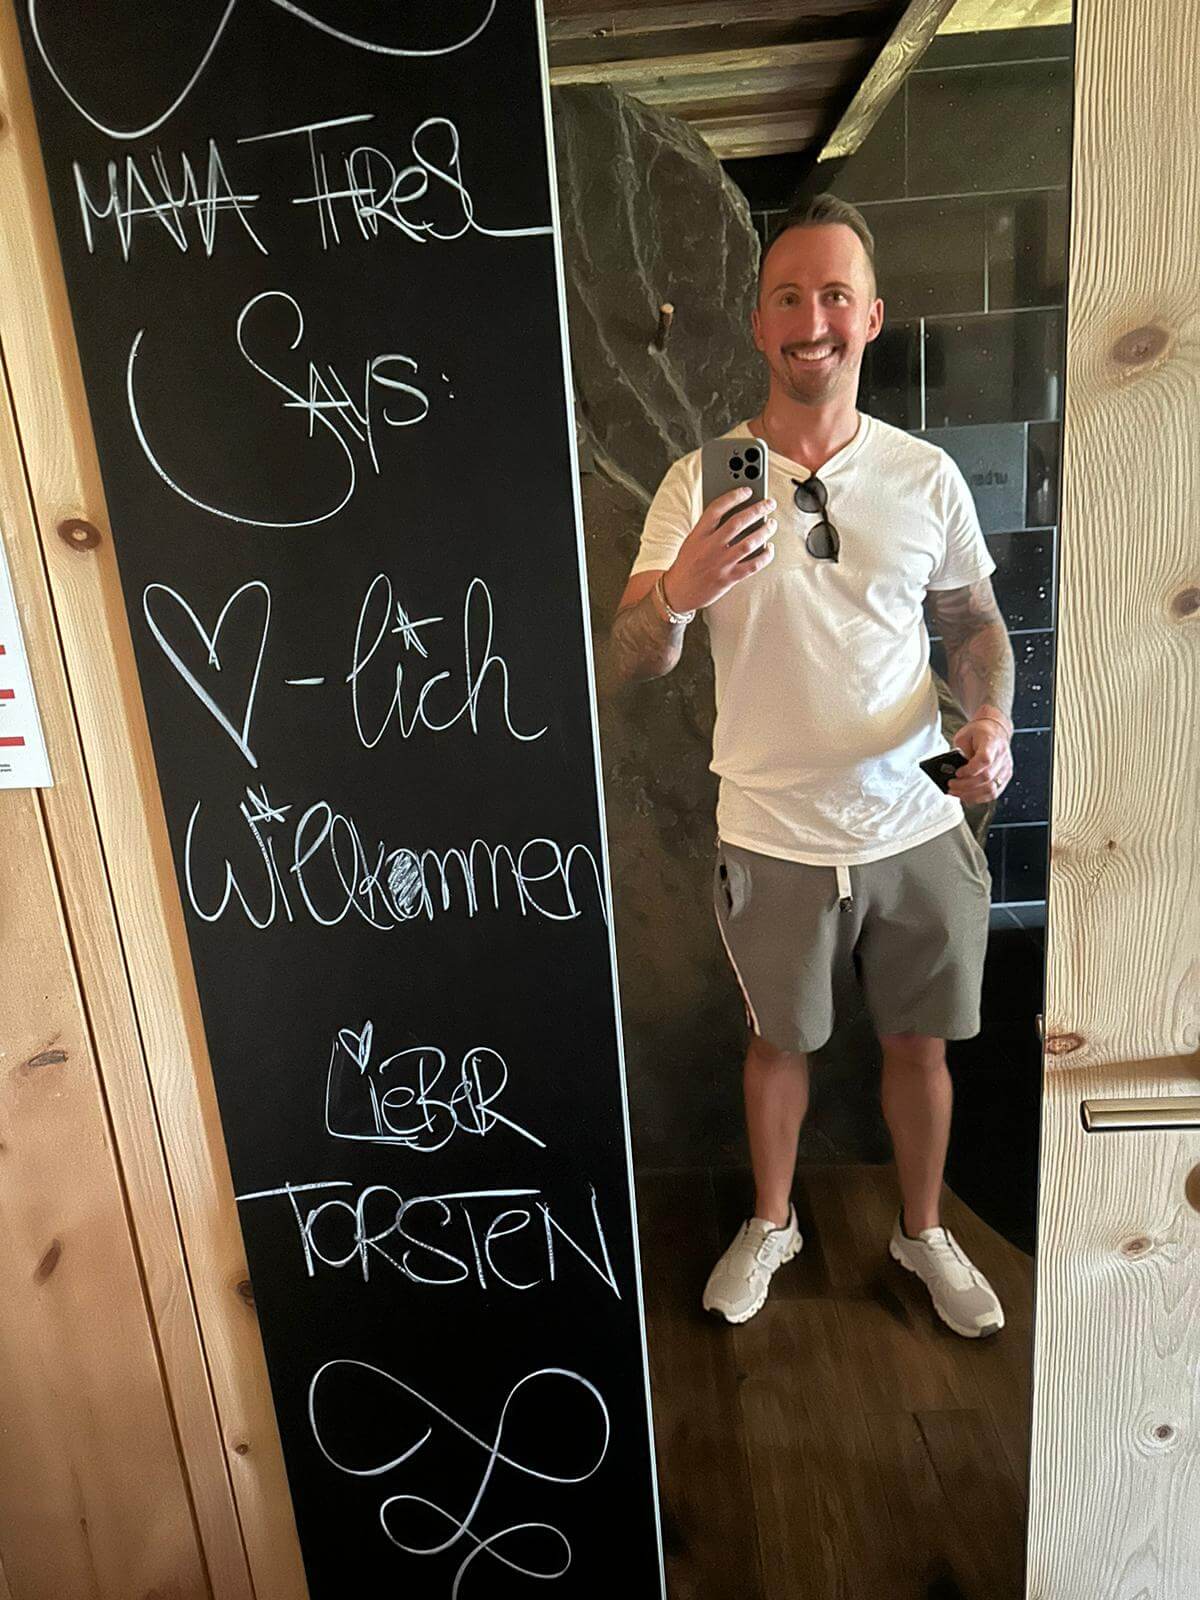 MAMA THRESL
SAYS:
♡-lich
Willkommen
LIEBER
TORSTEN